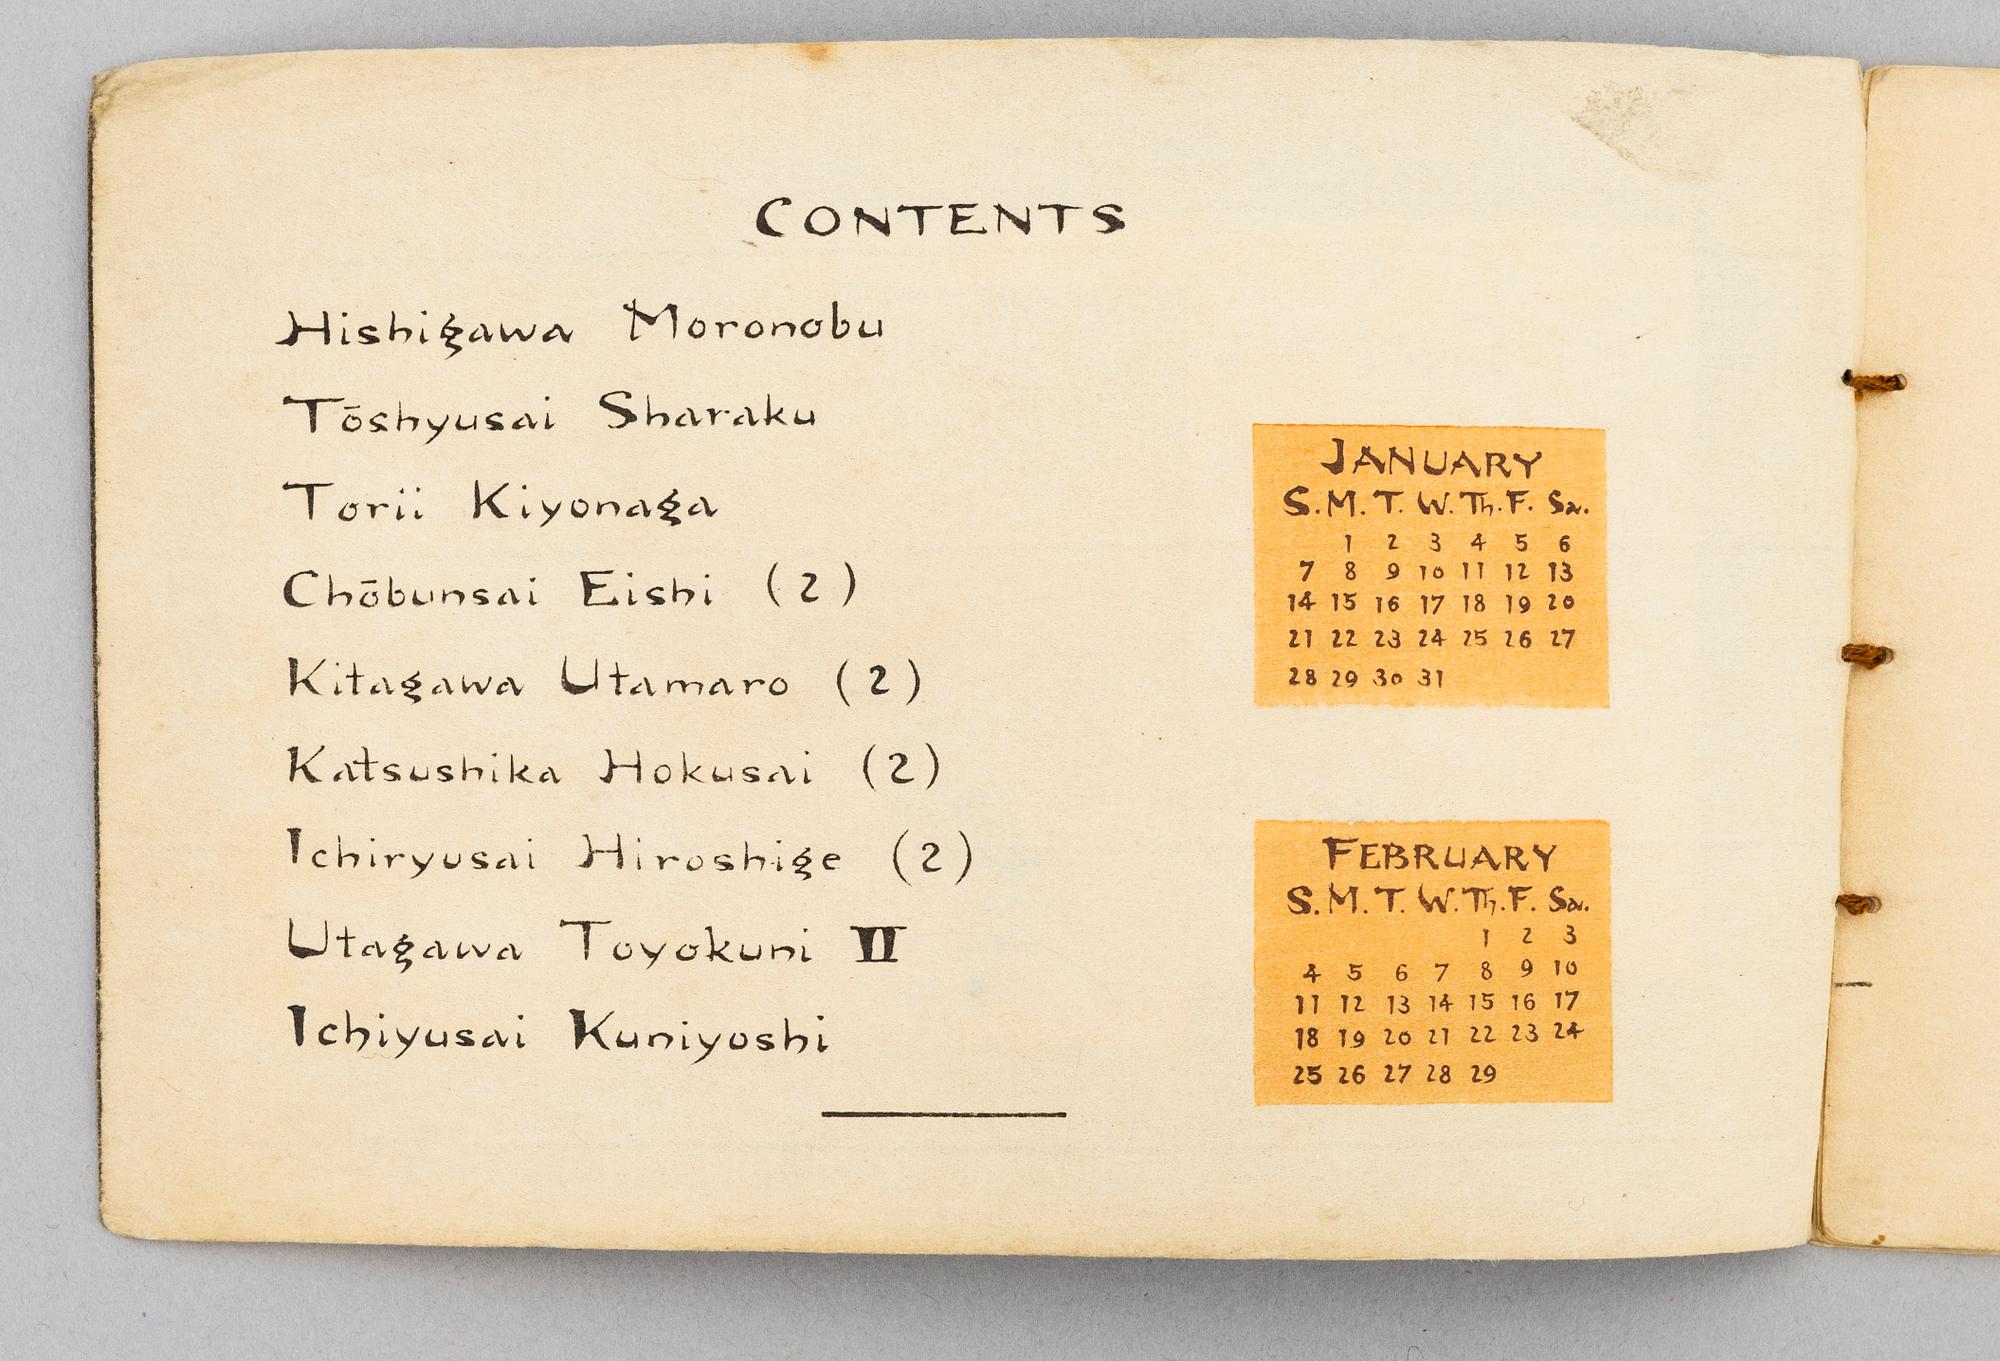 CONTENTS
Hishigawa Moronobu
Tōshyusai Sharaku
Torii Kiyonaga
Chōbunsai Eishi (2)
Kitagawa Utamaro (2)
Katsushika Hokusai (2)
Ichiryusai Hiroshige (2)
Utagawa Toyokuni II
Ichiyusai Kuniyoshi
JANUARY
S. M. T. W. Th. F. Sa.
1 2 3 4 5 6
7 8 9 10 11 12 13
14 15 16 17 18 19 20
21 22 23 24 25 26 27
28 29 30 31
FEBRUARY
S. M. T. W. Th. F. Sa.
1 2 3
4 5 6 7 8 9 10
11 12 13 14 15 16 17
18 19 20 21 22 23 24
25 26 27 28 29